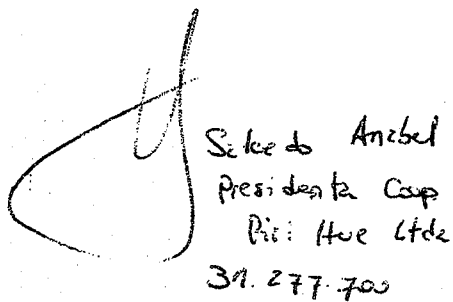 Salcedo Anabel
Presidenta Coop
Piri Hue Ltda
31.277.700